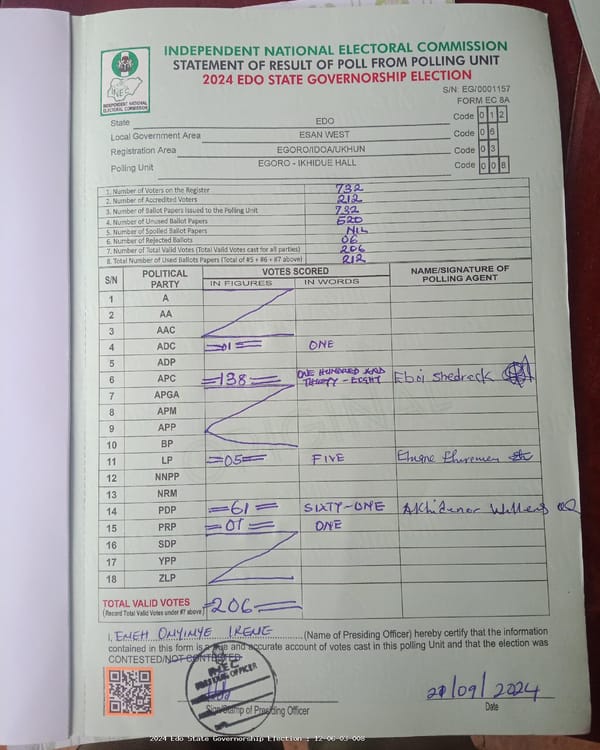 INDEPENDENT NATIONAL ELECTORAL COMMISSION
STATEMENT OF RESULT OF POLL FROM POLLING UNIT
2024 EDO STATE GOVERNORSHIP ELECTION
INEC
INDEPENDENT NATIONAL
ELECTORAL COMMISSION
S/N: EG/0001157
FORM EC 8A
State EDO Code 0 1 2
Local Government Area ESAN WEST Code 0 6
Registration Area EGORO/IDOA/UKHUN Code 0 3
Polling Unit EGORO - IKHIDUE HALL Code 0 0 8
1. Number of Voters on the Register 732
2. Number of Accredited Voters 212
3. Number of Ballot Papers Issued to the Polling Unit 732
4. Number of Unused Ballot Papers 520
5. Number of Spoiled Ballot Papers NIL
6. Number of Rejected Ballots 06
7. Number of Total Valid Votes (Total Valid Votes cast for all parties) 206
8. Total Number of Used Ballots Papers (Total of #5 + #6 + #7 above) 212
S/N POLITICAL PARTY VOTES SCORED NAME/SIGNATURE OF POLLING AGENT
IN FIGURES IN WORDS
1 A
2 AA
3 AAC
4 ADC =01= ONE
5 ADP
6 APC =138= ONE HUNDRED AND THIRTY-EIGHT Eboi Shedrack
7 APGA
8 APM
9 APP
10 BP
11 LP =05= FIVE
12 NNPP
13 NRM
14 PDP =61= SIXTY-ONE
15 PRP =01= ONE
16 SDP
17 YPP
18 ZLP
TOTAL VALID VOTES =206=
(Record Total Valid Votes under #7 above)
I, ENEH ONYINYE IRENE (Name of Presiding Officer) hereby certify that the information
contained in this form is a true and accurate account of votes cast in this polling Unit and that the election was
CONTESTED/NOT CONTESTED
INEC
PRESIDING OFFICER
Sign/Stamp of Presiding Officer
21/09/2024
Date
2024 Edo State Governorship Election : 12-06-03-008